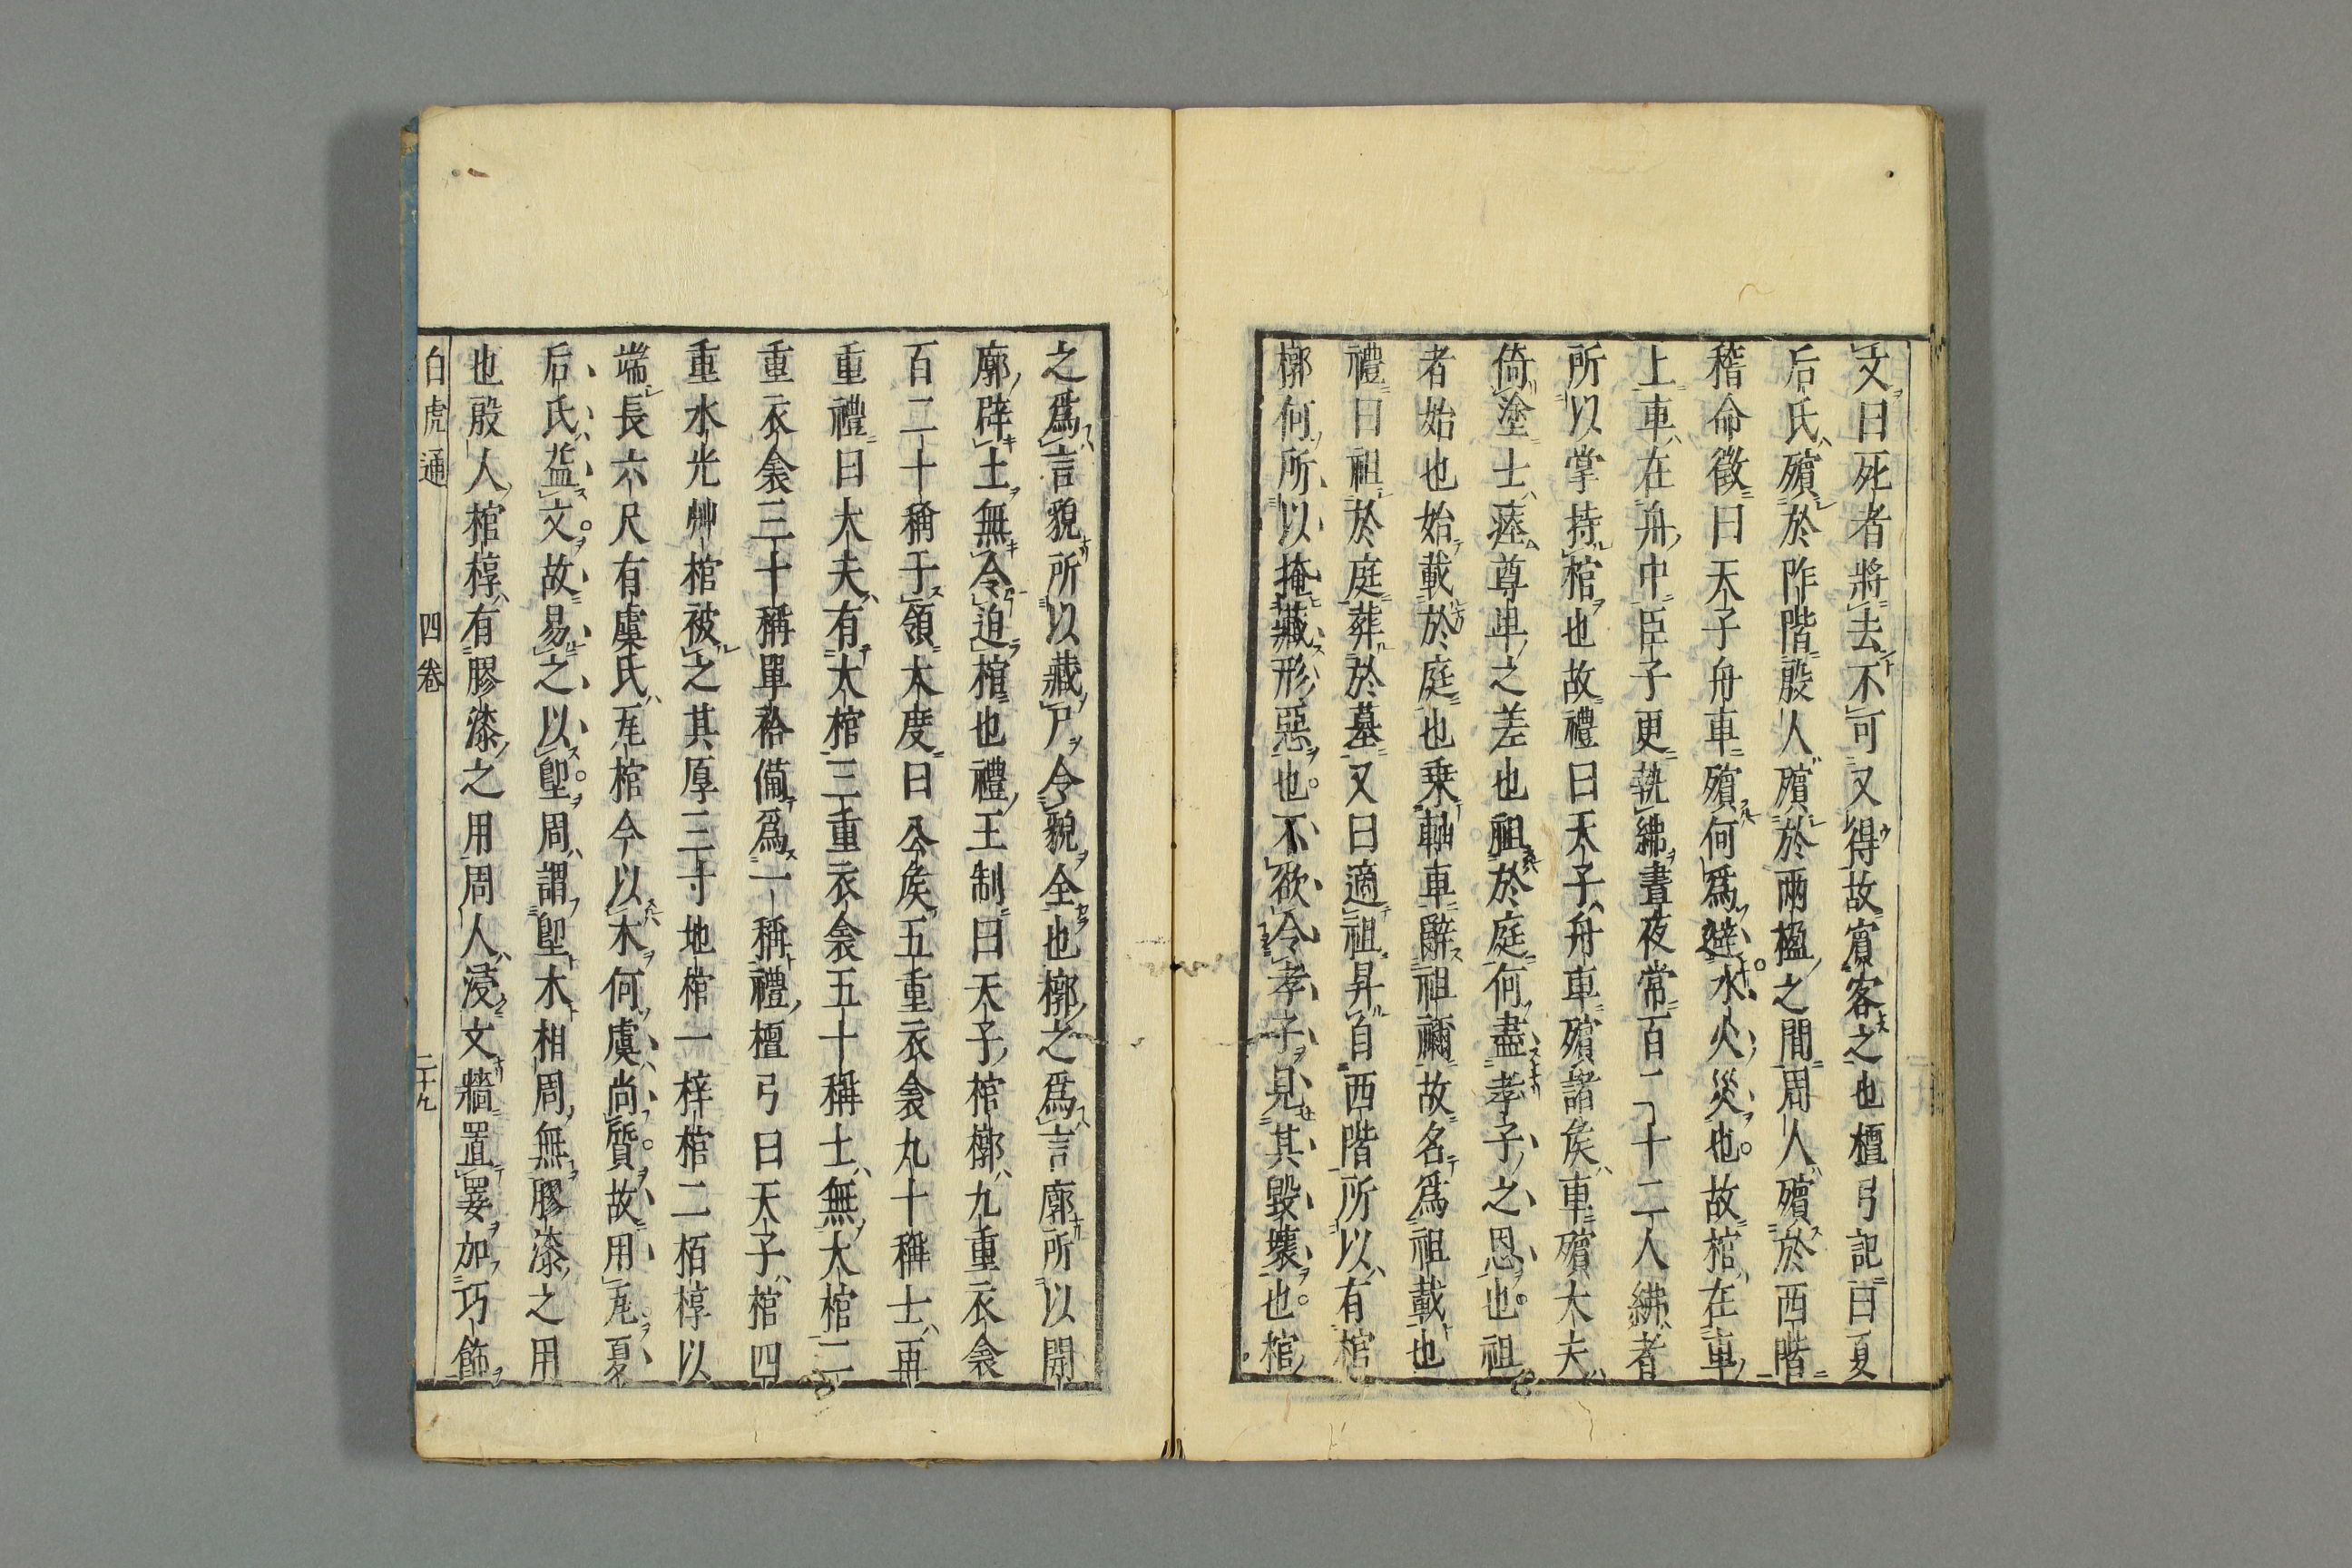 文曰死者將去不可又得故賔客之也檀弓記曰夏
后氏殯於阼階殷人殯於兩楹之間周人殯於西階
稽命徵曰天子舟車殯何爲避水火災也故棺在車
上車在舟中臣子更執紼晝夜常百二十二人紼者
所以掌持棺也故禮曰天子舟車殯諸矦車殯大夫
倚塗士瘞尊卑之差也祖於庭何盡孝子之恩也祖
者始也始載於庭也乗軸車辭祖禰故名爲祖載也
禮曰祖於庭葬於墓又曰適祖昇自西階所以有棺
槨何所以掩藏形惡也不欲令孝子見其毀壞也棺
之爲言貌所以藏尸令貌全也槨之爲言廓所以開
廓辟土無令迫棺也禮王制曰天子棺槨九重衣衾
百二十稱于領大度曰公矦五重衣衾九十稱士再
重禮曰大夫有大棺三重衣衾五十稱士無大棺二
重衣衾三十稱單袷備爲一稱禮檀弓曰天子棺四
重水兕艸棺被之其厚三寸地棺一梓棺二栢椁以
端長六尺有虞氏瓦棺今以木何虞尚質故用瓦夏
后氏益文故易之以堲周謂堲木相周無膠漆之用
也殷人棺椁有膠漆之用周人浸文牆置翣加巧飾
白虎通 四卷 二十九